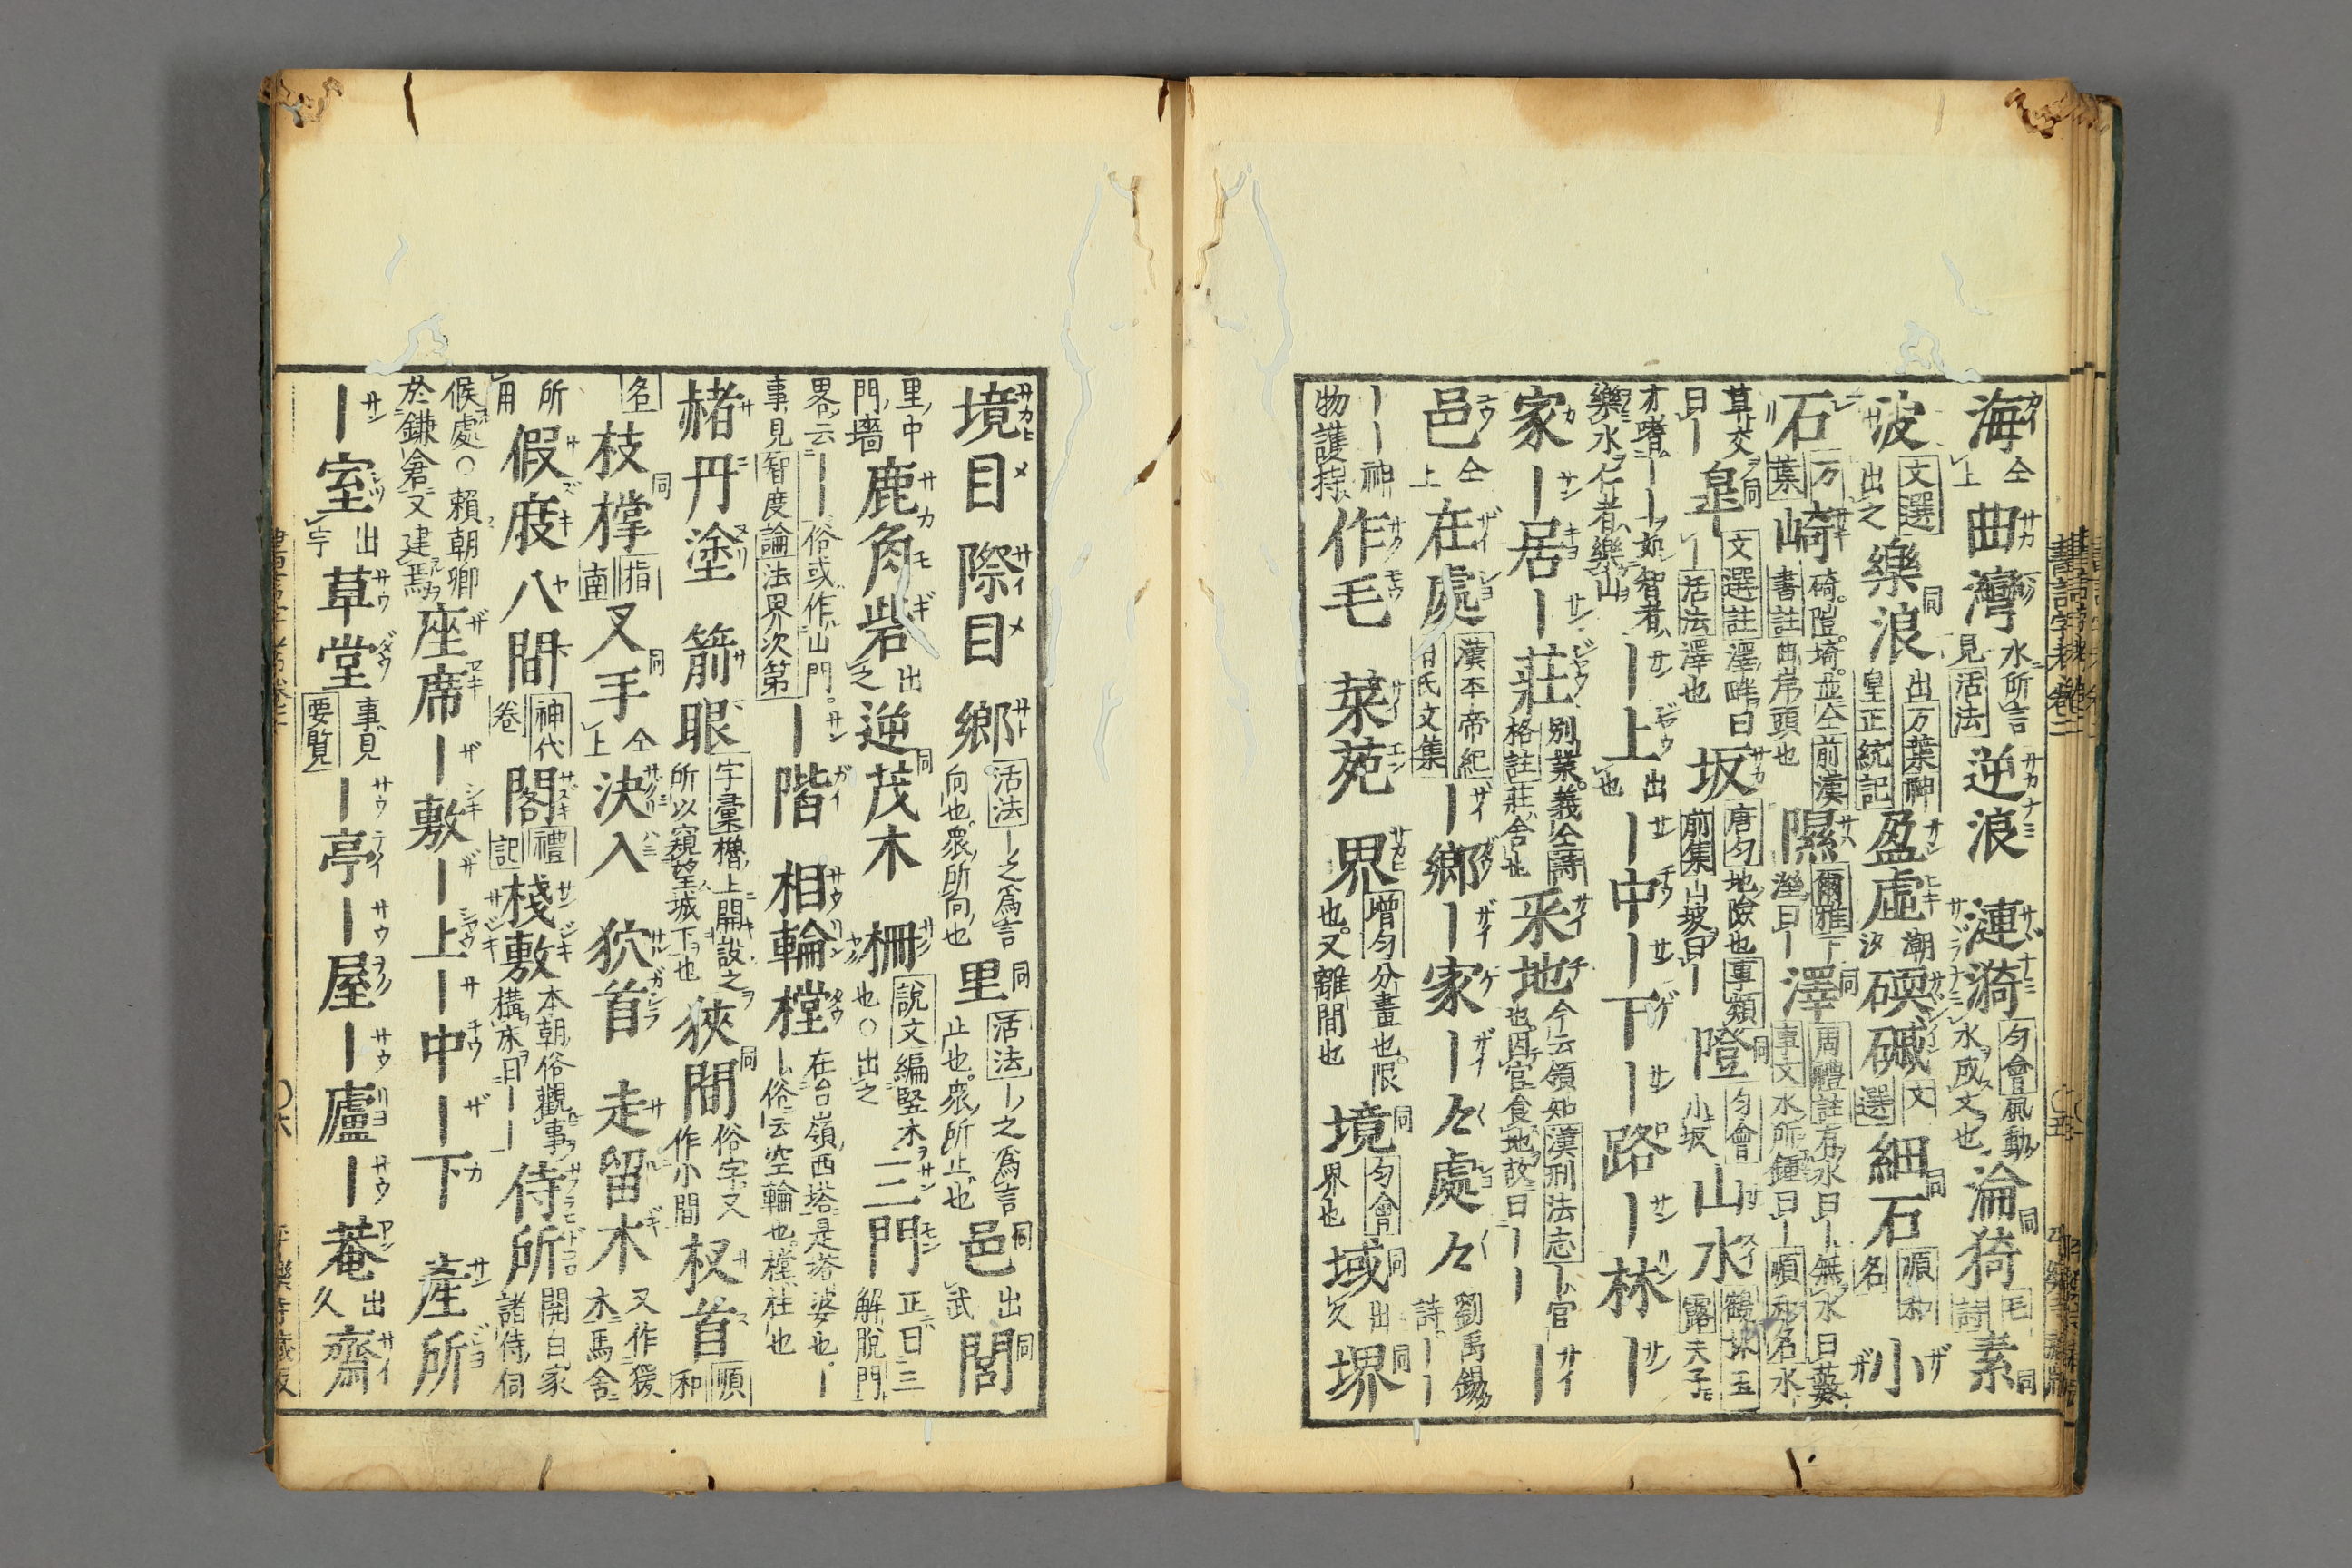 海仝上曲灣水所言見活法逆浪漣漪匀會風動水成文也淪猗毛詩素
波文選出之樂浪出万葉神皇正統記盈虛潮汐碝磩文選細石順和名小
石万葉崎碕隑埼並仝前漢書註曲岸頭也隰爾雅下濕曰｜澤周禮註有水曰｜無水曰藪事文水所鍾曰｜順和名水
草交曰｜皐文選註澤畔曰｜活法澤也坂唐匀地險也事類前集山坡曰｜隥匀會小坂山水鶴林玉露夫子
才嗜｜｜如智者樂水仁者樂山｜上出也｜中｜下｜路｜林｜
家｜居｜莊別業義仝詩格註莊舍也采地今云領知漢刑法志｜官也因官食地故曰｜｜｜
邑仝上在處漢平帝紀白氏文集｜鄉｜家｜々處々劉禹錫詩｜｜
｜｜神物護持作毛菜苑界增匀分畫也限也又離間也境匀會界也域出久堺
境目際目鄉活法｜之爲言向也衆所向也里活法｜之爲言止也衆所止也邑出武閭
里中門墻鹿角砦出之逆茂木柵說文編竪木也○出之三門正曰三解脫門
畧云｜｜俗或作山門事見智度論法界次第｜階相輪橖在台嶺西塔是塔婆也｜｜俗云空輪也橖柱也
赭丹塗箭眼字彙櫓上開設之所以窺望城下也狹間俗字又作小間杈首順和
名枝橕指南叉手仝上決入犾首走留木又作猨木馬舍
所用假庪八間神代卷閣禮記棧敷本朝俗觀事構床曰｜｜侍所開白家諸侍伺
候處○賴朝卿於鎌倉又建焉座席｜敷｜上｜中｜下產所
｜室出宁草堂事見要覽｜亭｜屋｜廬｜菴出久齋